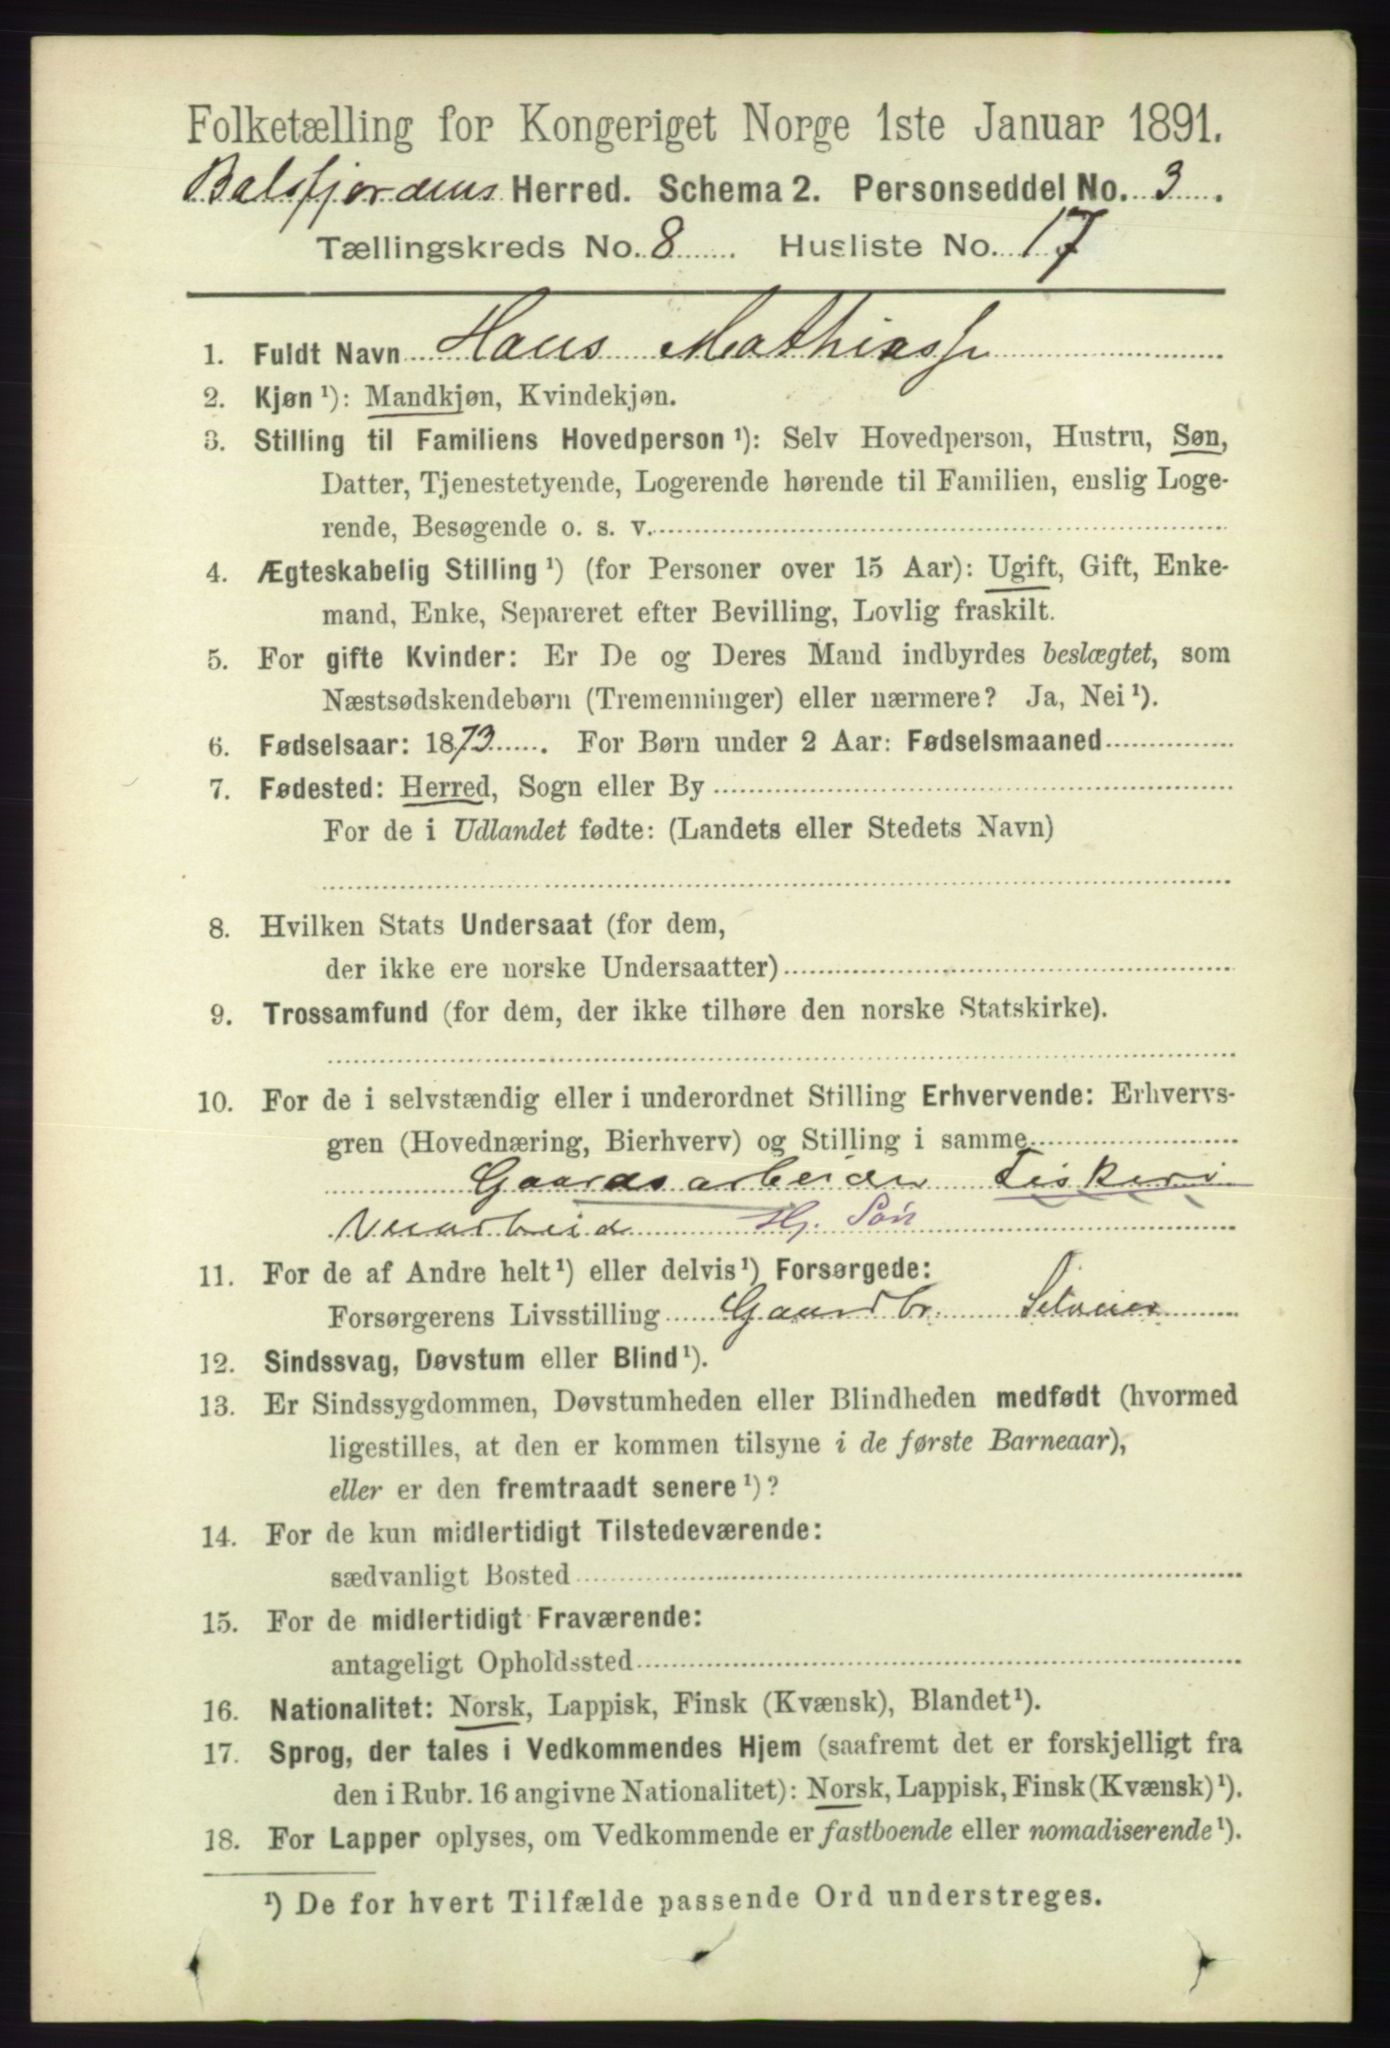 Folketælling for Kongeriget Norge 1ste Januar 1891.
Balsfjordens Herred. Schema 2. Personseddel No. 3.
Tællingskreds No. 8. Husliste No. 17
1. Fuldt Navn Hans Mathiass
2. Kjøn ¹): Mandkjøn, Kvindekjøn.
3. Stilling til Familiens Hovedperson ¹): Selv Hovedperson, Hustru, Søn,
Datter, Tjenestetyende, Logerende hørende til Familien, enslig Loge-
rende, Besøgende o. s. v.
4. Ægteskabelig Stilling ¹) (for Personer over 15 Aar): Ugift, Gift, Enke-
mand, Enke, Separeret efter Bevilling, Lovlig fraskilt.
5. For gifte Kvinder: Er De og Deres Mand indbyrdes beslægtet, som
Næstsødskendebørn (Tremenninger) eller nærmere? Ja, Nei ¹).
6. Fødselsaar: 1873. For Børn under 2 Aar: Fødselsmaaned
7. Fødested: Herred, Sogn eller By
For de i Udlandet fødte: (Landets eller Stedets Navn)
8. Hvilken Stats Undersaat (for dem,
der ikke ere norske Undersaatter)
9. Trossamfund (for dem, der ikke tilhøre den norske Statskirke).
10. For de i selvstændig eller i underordnet Stilling Erhvervende: Erhvervs-
gren (Hovednæring, Bierhverv) og Stilling i samme
Gaardsarbeider Fiskeri
Vedarbeid G. Søn
11. For de af Andre helt ¹) eller delvis ¹) Forsørgede:
Forsørgerens Livsstilling Gaardbr. Selveier
12. Sindssvag, Døvstum eller Blind ¹).
13. Er Sindssygdommen, Døvstumheden eller Blindheden medfødt (hvormed
ligestilles, at den er kommen tilsyne i de første Barneaar),
eller er den fremtraadt senere ¹)?
14. For de kun midlertidigt Tilstedeværende:
sædvanligt Bosted
15. For de midlertidigt Fraværende:
antageligt Opholdssted
16. Nationalitet: Norsk, Lappisk, Finsk (Kvænsk), Blandet ¹).
17. Sprog, der tales i Vedkommendes Hjem (saafremt det er forskjelligt fra
den i Rubr. 16 angivne Nationalitet): Norsk, Lappisk, Finsk (Kvænsk) ¹).
18. For Lapper oplyses, om Vedkommende er fastboende eller nomadiserende ¹).
¹) De for hvert Tilfælde passende Ord understreges.